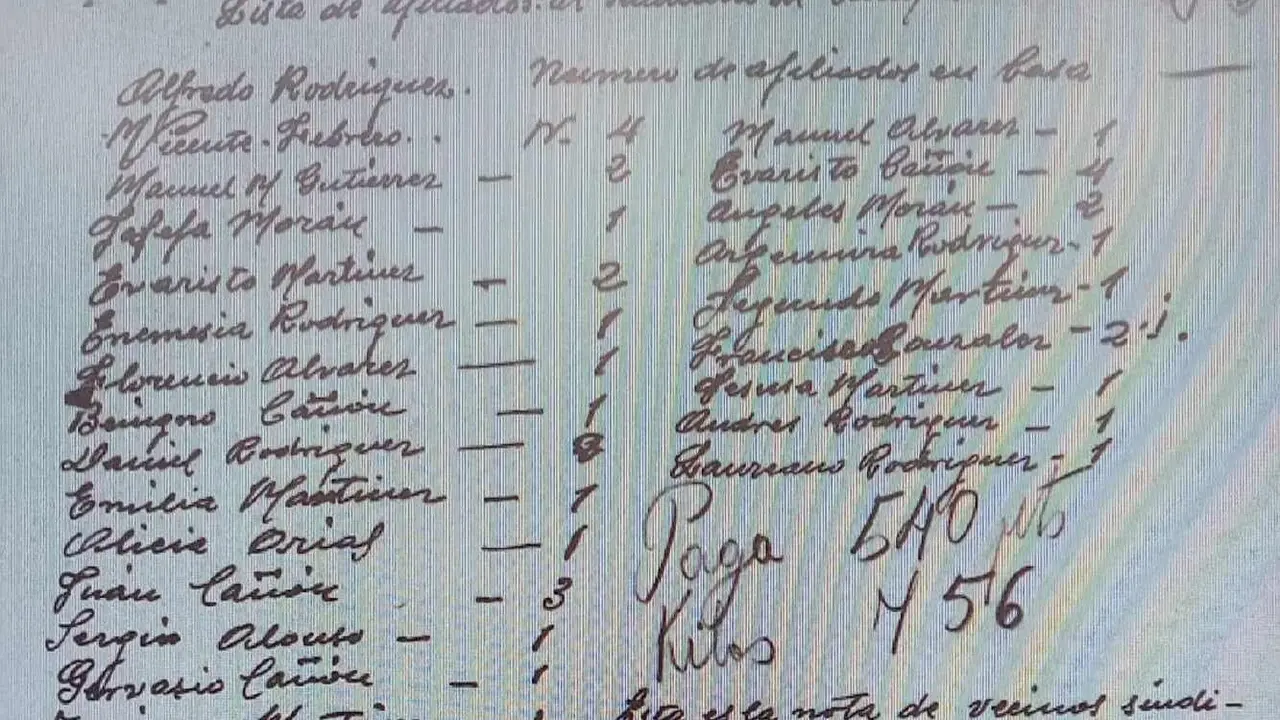 Lista de afiliados al
Alfredo Rodriguez. Numero de afiliados en casa —
M Vicente Febrero.. N. 4
Manuel M Gutierrez — 2
Jesefa Morán — 1
Evaristo Martinez — 2
Enemesia Rodriguez — 1
Florencio Alvarez — 1
Benigno Cañón — 1
Daniel Rodriguez —
Emilia Martinez — 1
Alicia Orias — 1
Juán Cañón — 3
Sergio Alonso — 1
Gervasio Cañón — 1
Manuel Alvarez — 1
Evaristo Cañón — 4
Angeles Morán — 2
Argemira Rodriguez - 1
Segundo Martinez - 1
Francisco Gonzalez - 2
Jesusa Martinez - 1
Andres Rodriguez - 1
Laureano Rodriguez - 1
Paga 540 pts
Kilos 456
Esta es la nota de vecinos sindi-